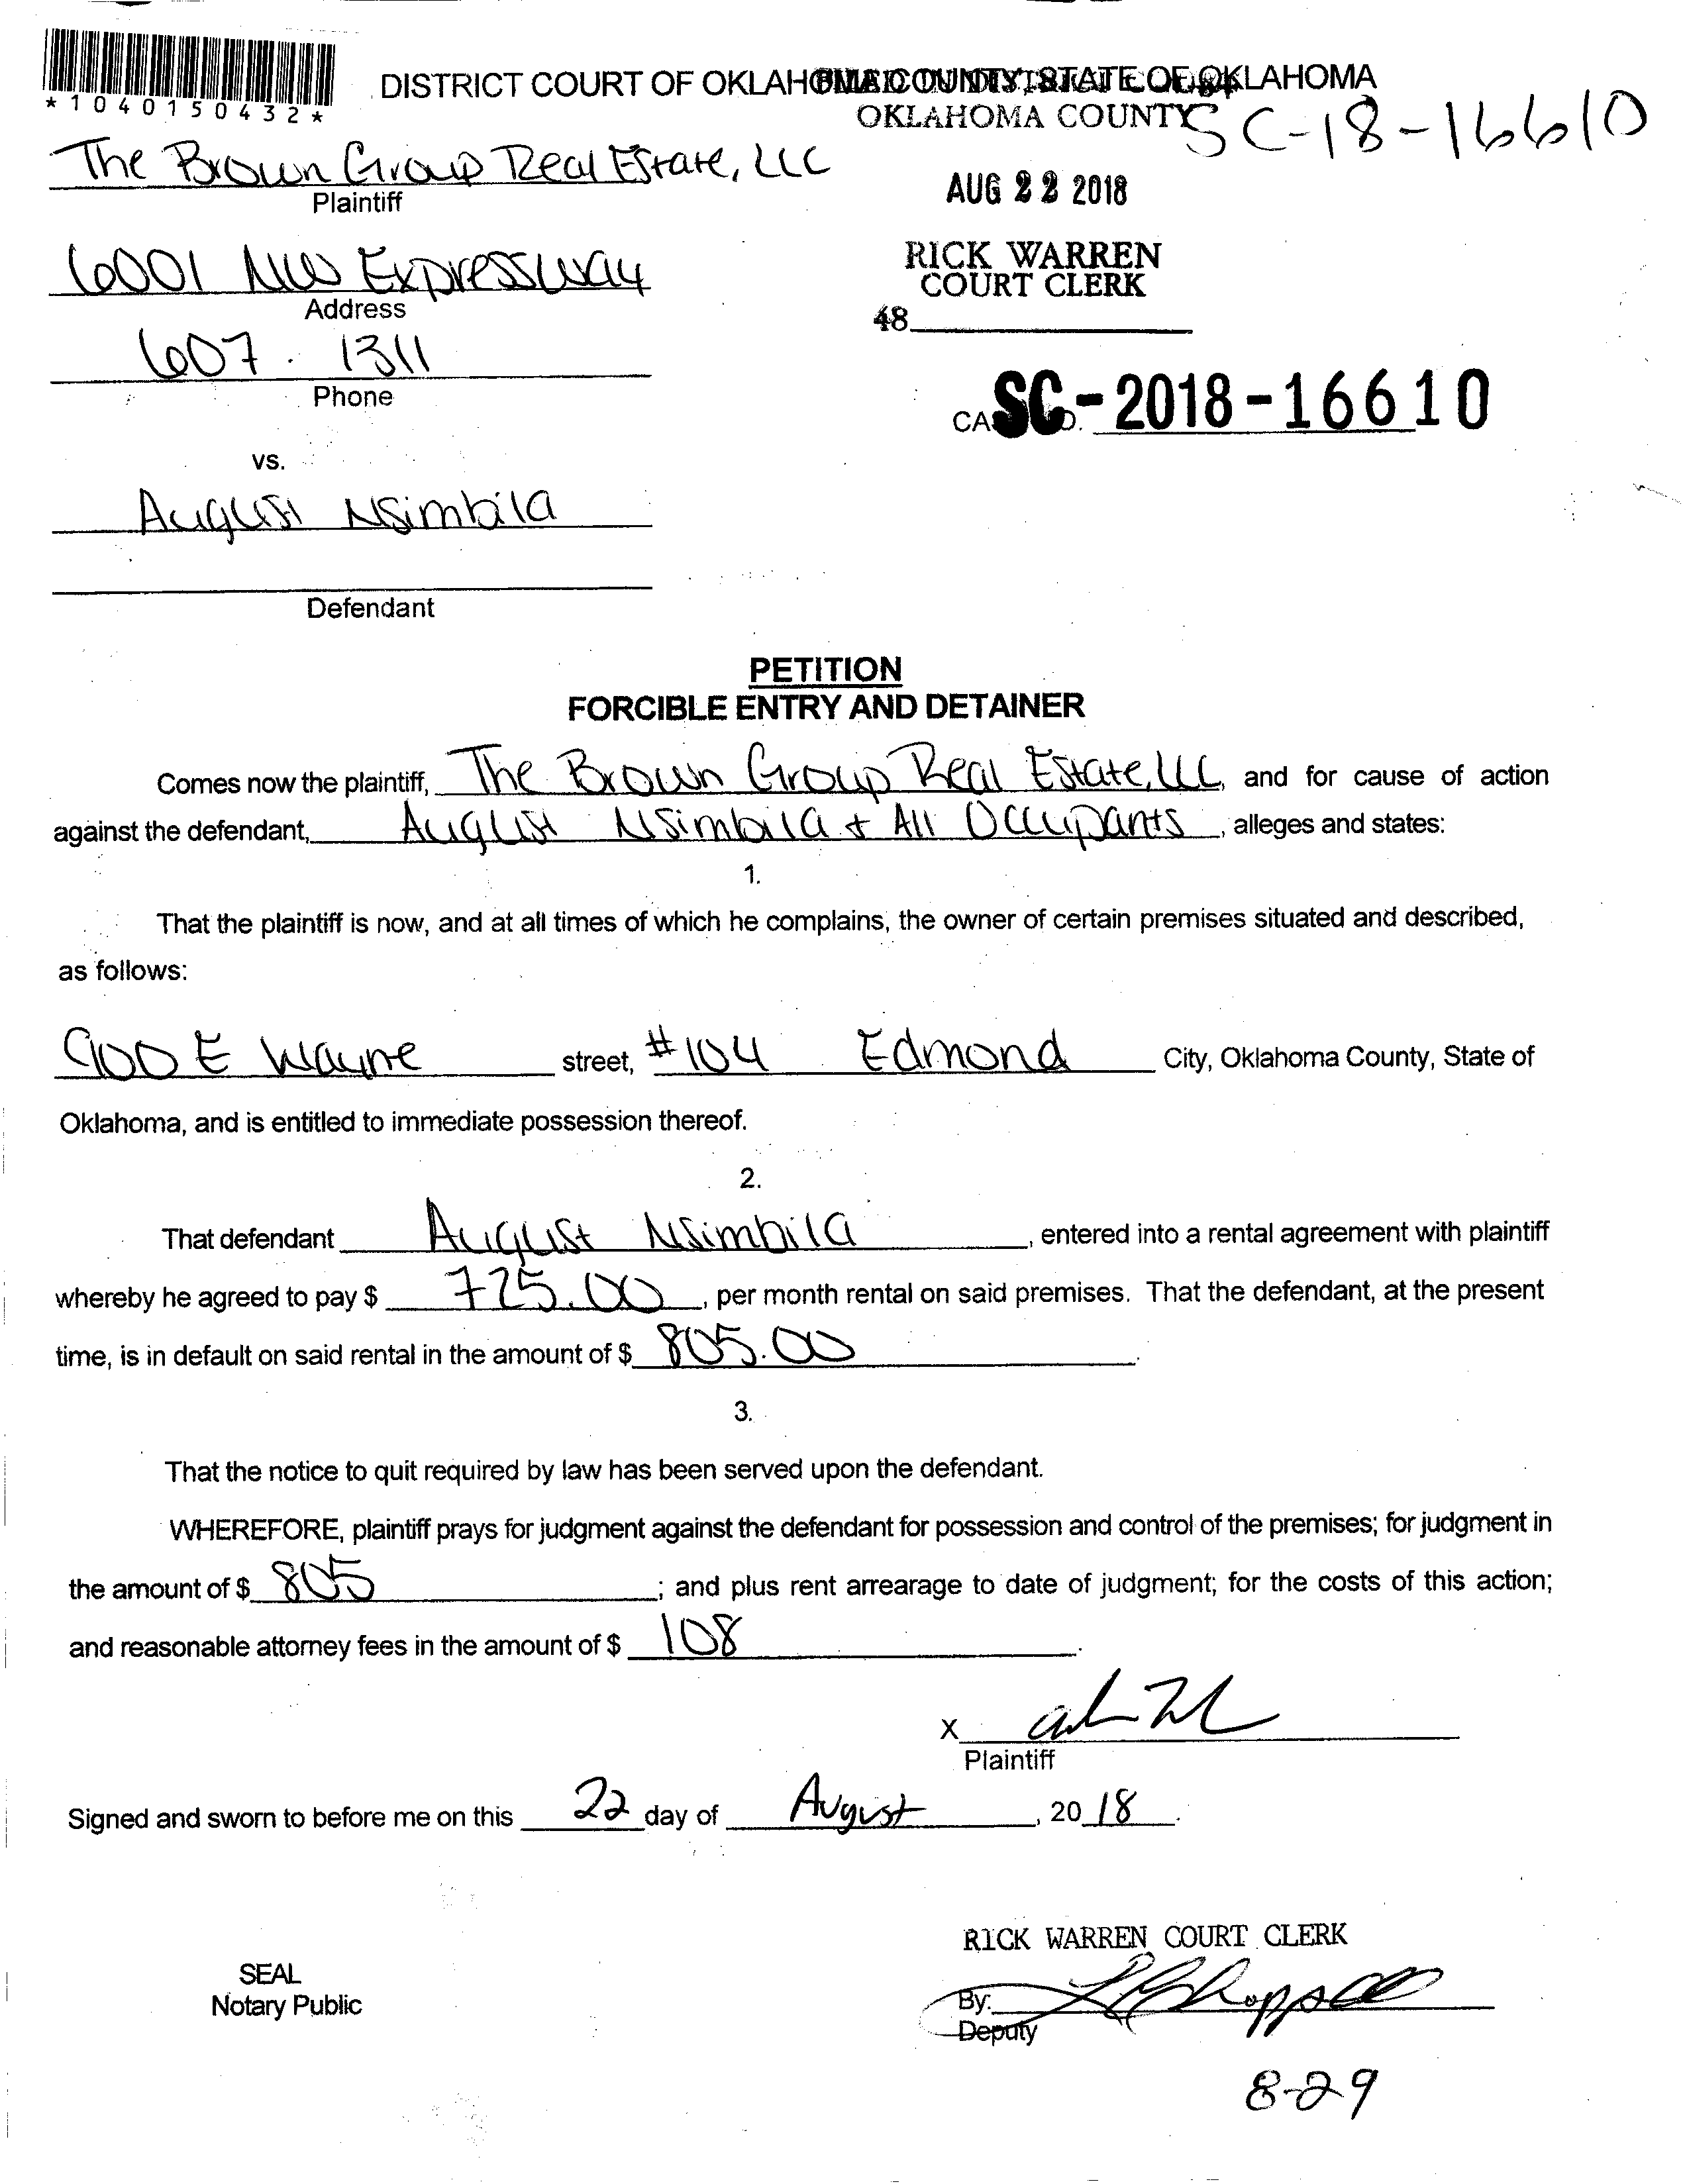 *1040150432*
DISTRICT COURT OF OKLAHOMA COUNTY, STATE OF OKLAHOMA
OKLAHOMA COUNTY
SC-18-16610
The Brown Group Real Estate, LLC
Plaintiff
AUG 22 2018
6001 NW Expressway
Address
RICK WARREN
COURT CLERK
48
607 . 1311
Phone
SC-2018-16610
vs.
August Nsimbila
Defendant
PETITION
FORCIBLE ENTRY AND DETAINER
Comes now the plaintiff, The Brown Group Real Estate, LLC, and for cause of action
against the defendant, August Nsimbila + All Occupants, alleges and states:
1.
That the plaintiff is now, and at all times of which he complains, the owner of certain premises situated and described,
as follows:
900 E Wayne street, #104 Edmond City, Oklahoma County, State of
Oklahoma, and is entitled to immediate possession thereof.
2.
That defendant August Nsimbila, entered into a rental agreement with plaintiff
whereby he agreed to pay $ 725.00, per month rental on said premises. That the defendant, at the present
time, is in default on said rental in the amount of $ 805.00.
3.
That the notice to quit required by law has been served upon the defendant.
WHEREFORE, plaintiff prays for judgment against the defendant for possession and control of the premises; for judgment in
the amount of $ 805; and plus rent arrearage to date of judgment; for the costs of this action;
and reasonable attorney fees in the amount of $ 108.
X
Plaintiff
Signed and sworn to before me on this 22 day of August, 20 18.
RICK WARREN COURT CLERK
SEAL
Notary Public
By:
Deputy
8-29